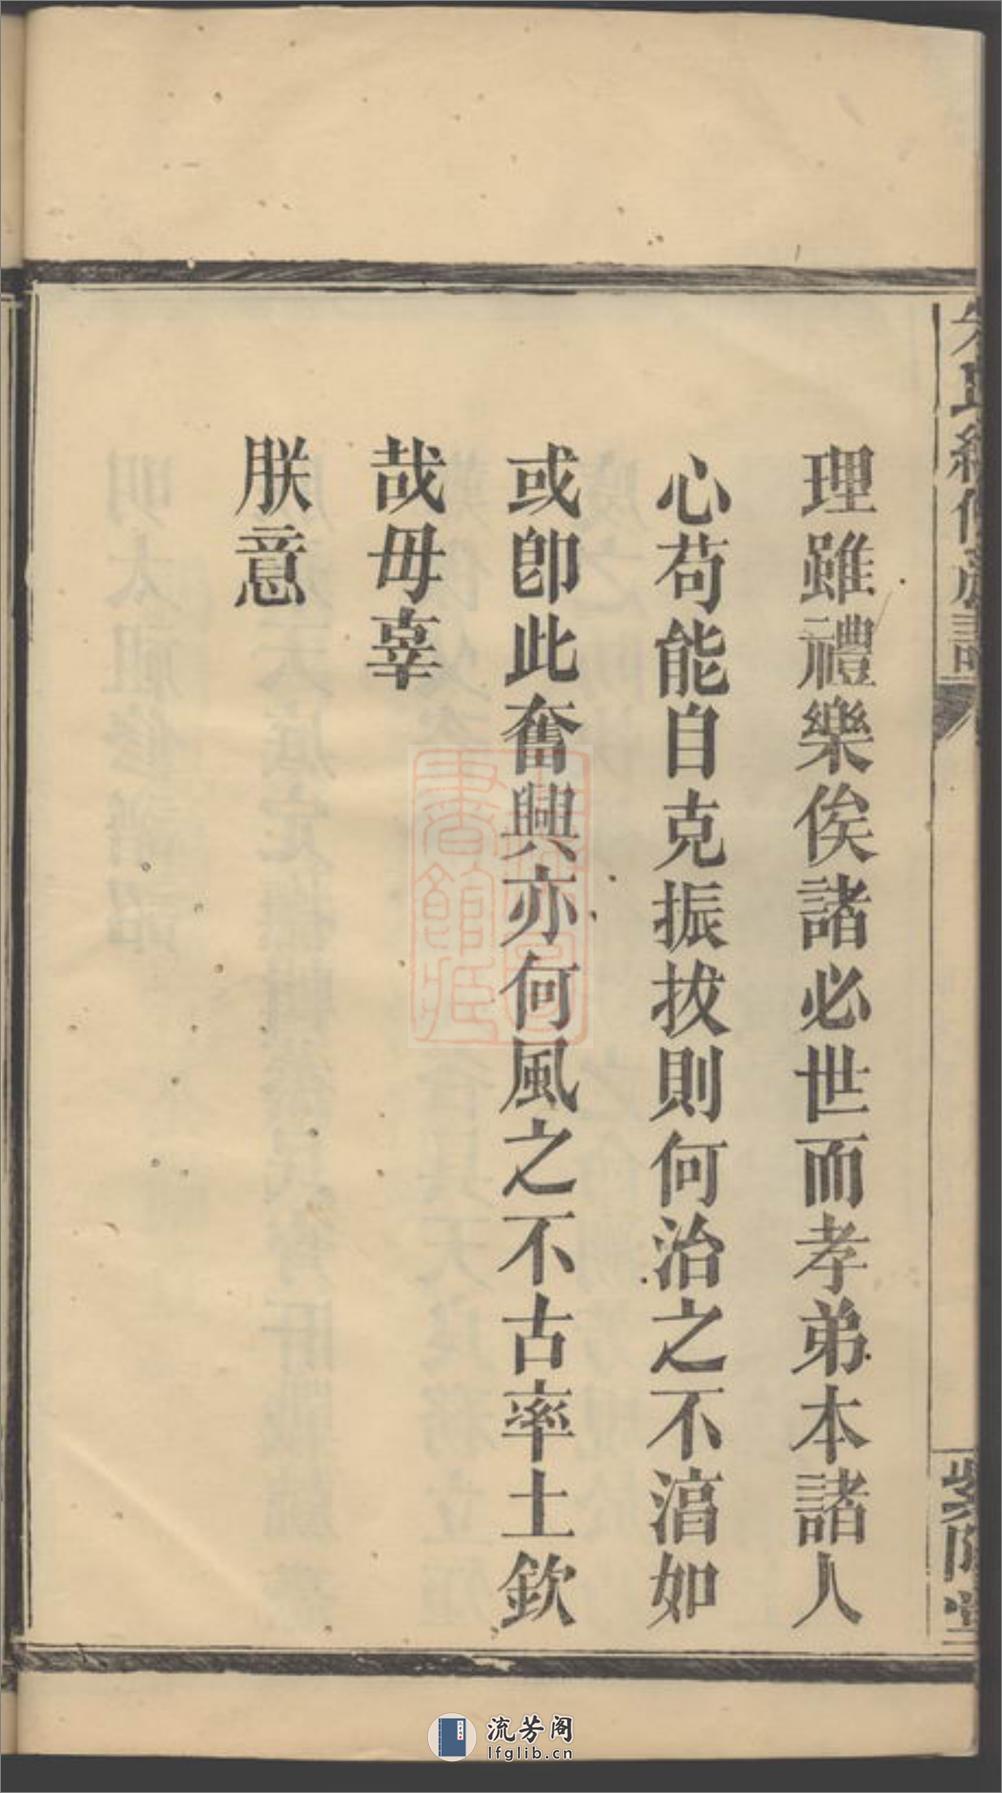 朱氏續修族譜
紫陽堂
理雖禮樂俟諸必世而孝弟本諸人
心苟能自克振拔則何治之不滈如
或卽此奮興亦何風之不古率土欽
哉毋辜
朕意
書館藏
流芳阁
lfglib.cn